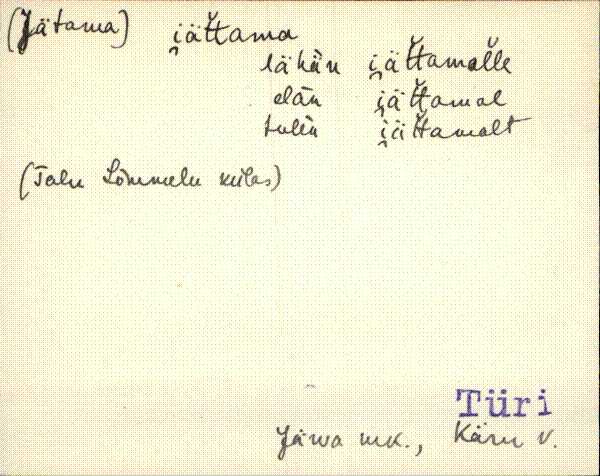 (Jätama) i̯ät̆tama
lähän i̯ät̆tamal̆le
elän i̯ät̆tamal
tulen i̯ät̆tamalt
(Talu Lõmmelu külas)
Türi
Järva mk., Käru v.